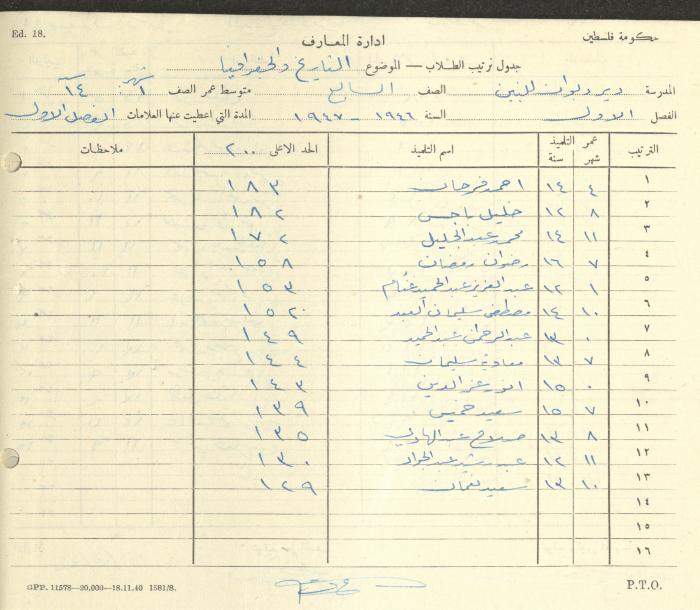 Ed. 18.
حكومة فلسطين
ادارة المعارف
جدول ترتيب الطلاب — الموضوع التاريخ والجغرافيا
المدرسة دير ديوان للبنين الصف السابع متوسط عمر الصف ١ شهر ١٤ سنة
الفصل الاول السنة ١٩٤٦ - ١٩٤٧ المدة التي اعطيت عنها العلامات الفصل الاول
الترتيب عمر التلميذ شهر سنة اسم التلميذ الحد الاعلى ٢٠٠ ملاحظات
١ ٤ ١٤ احمد فرحان ١٨٣
٢ ٨ ١٢ خليل ناجس ١٨٢
٣ ١١ ١٤ محمد عبد الجليل ١٧٢
٤ ٧ ١٦ رضوان رمضان ١٥٨
٥ ١ ١٢ عبد العزيز عبد الحميد غنام ١٥٣
٦ ١٠ ١٤ مصطفى سليمان العبد ١٥٢
٧ ٠ ١٣ عبد الرحمن عبد الحميد ١٤٩
٨ ٧ ١٣ معاوية سليمان ١٤٤
٩ ٠ ١٥ انور عز الدين ١٤٣
١٠ ٧ ١٥ سعيد خميس ١٣٩
١١ ٨ ١٣ صلاح عبد الهادي ١٣٥
١٢ ١١ ١٢ عبد رشيد عبد الجواد ١٣٠
١٣ ١٠ ١٣ سعيد نعمان ١٢٩
١٤
١٥
١٦
GPP. 11578—20,000—18.11.40 1581/8.
P.T.O.